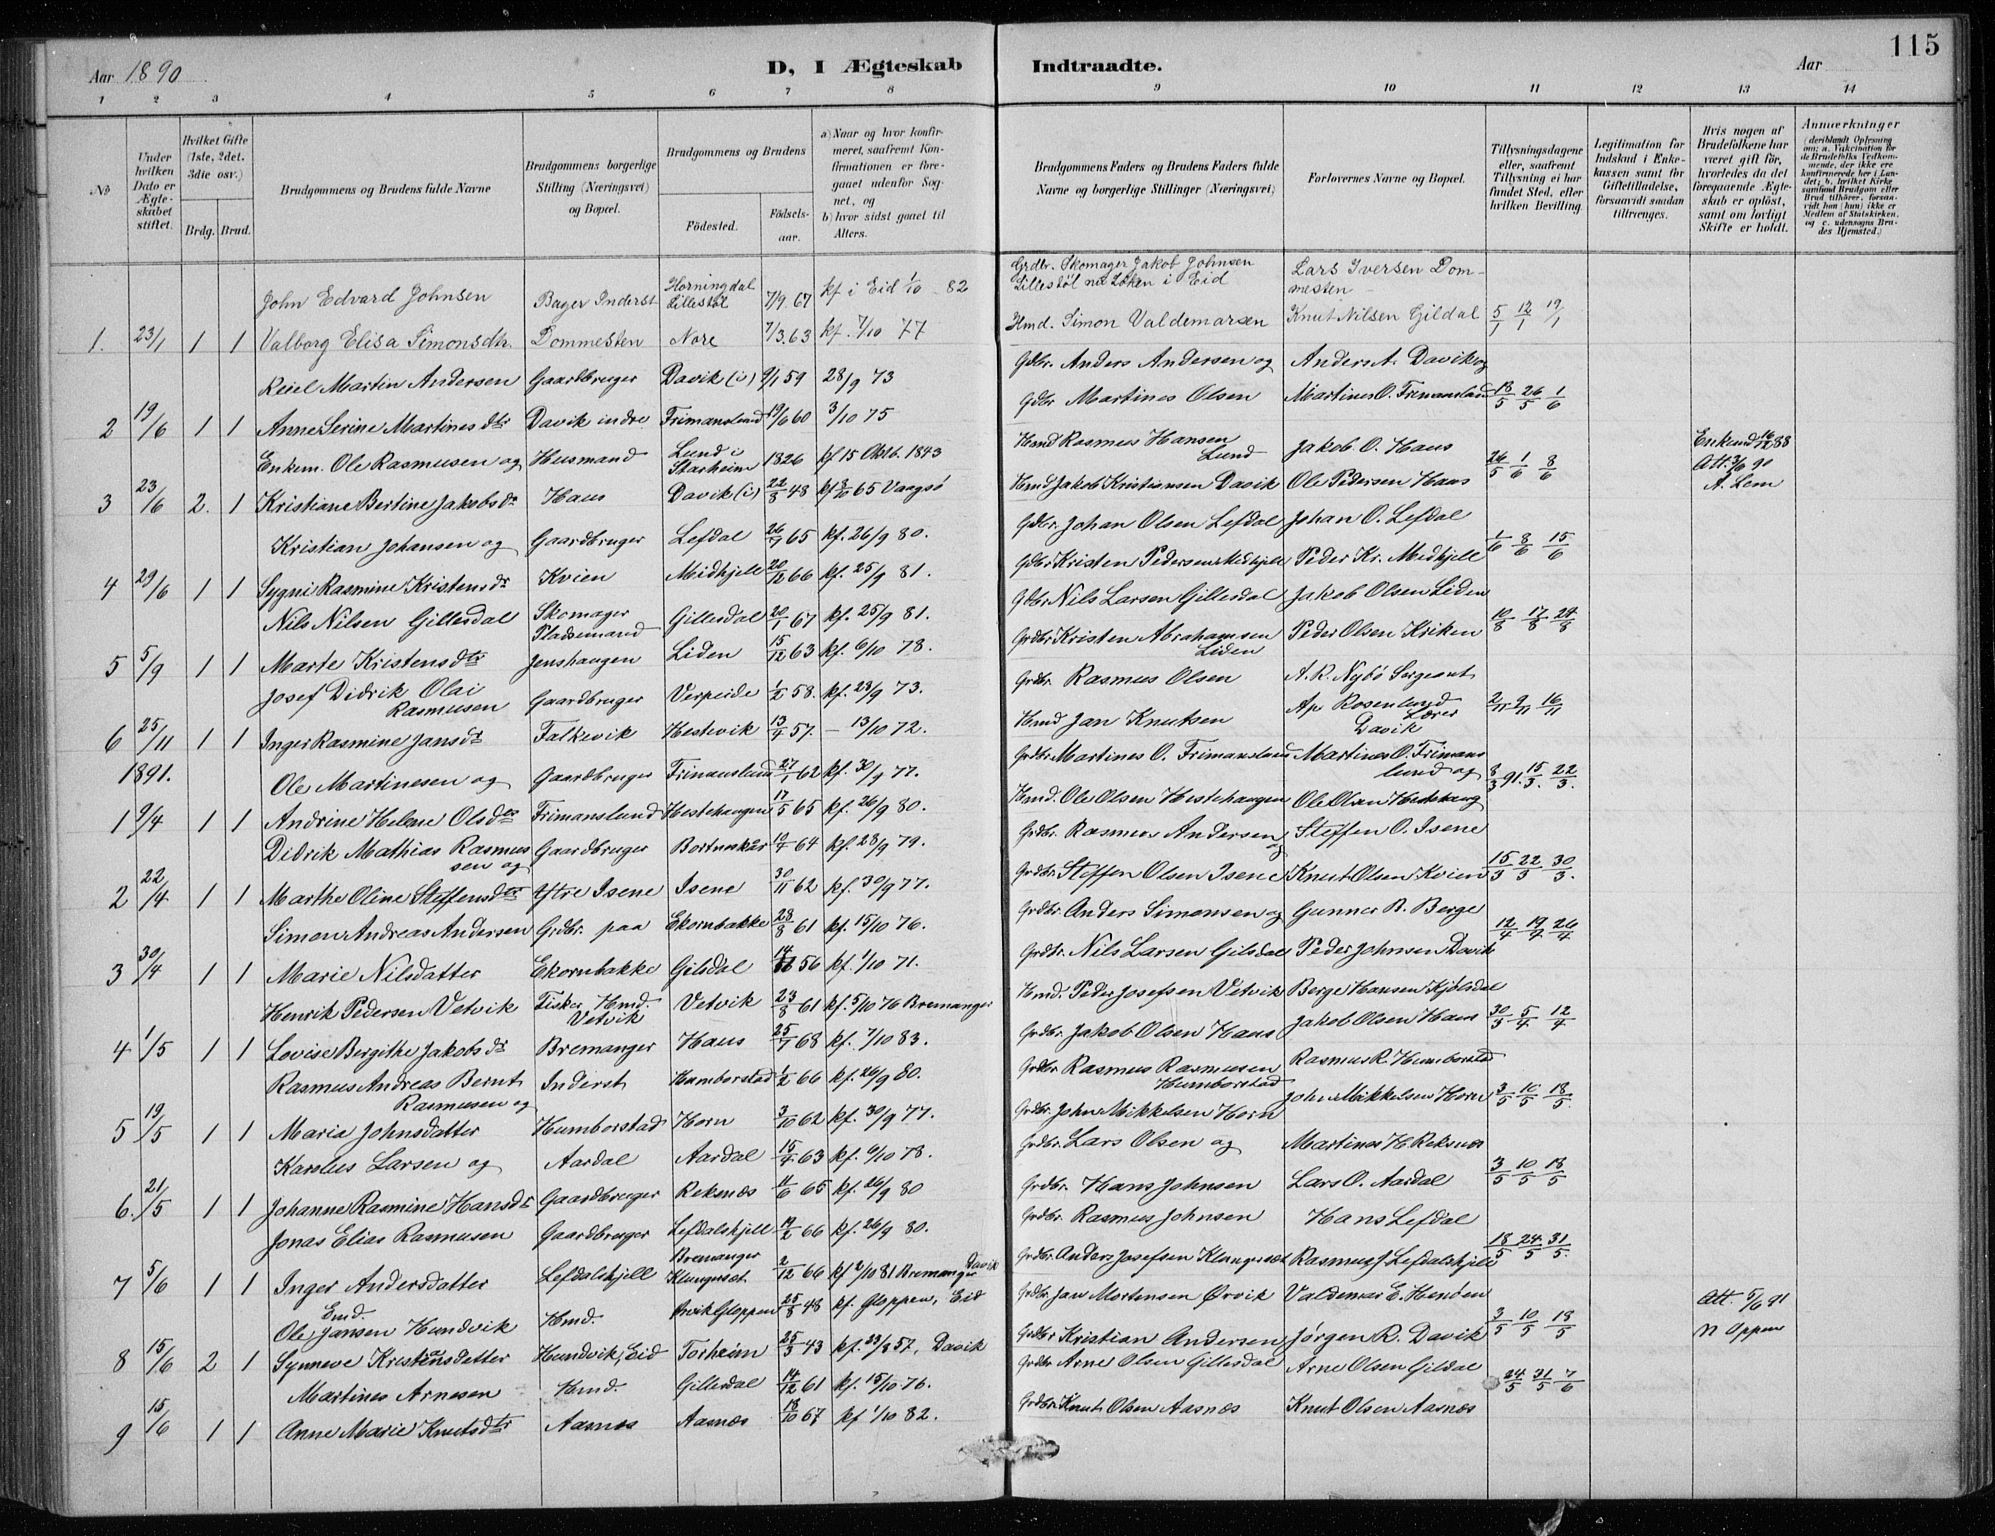 Aar 1890
D, I Ægteskab
Indtraadte.
Aar
115
1 2 3 4 5 6 7 8 9 10 11 12 13 14
No
Under hvilken Dato er Ægteskabet stiftet.
Hvilket Gifte (1ste, 2det. 3die osv.)
Brdg. Brud.
Brudgommens og Brudens fulde Navne
Brudgommens borgerlige Stilling (Næringsvei) og Bopæl.
Brudgommens og Brudens
Fødested.
Fødselsaar.
a) Naar og hvor konfirmeret, saafremt Konfirmationen er foregaaet udenfor Sognet, og
b) hvor sidst gaaet til Alters.
Brudgommens Faders og Brudens Faders fulde Navne og borgerlige Stillinger (Næringsvei)
Forlovernes Navne og Bopæl.
Tillysningsdagene eller, saafremt Tillysning ei har fundet Sted, efter hvilken Bevilling
Legitimation for Indskud i Enkekassen samt for Giftetilladelse, forsaavidt saadan tiltrænges.
Hvis nogen af Brudefolkene har været gift før, hvorledes da det foregaaende Ægteskab er opløst, samt om lovligt Skifte er holdt.
Anmærkninger (deriblandt Oplysning om: a. Vakcination for de Brudefolks Vedkommende, der ikke ere konfirmerede her i Landet; b. hvilket Kirkesamfund Brudgom eller Brud tilhører, forsaavidt han (hun) ikke er Medlem af Statskirken, og c. udensogns Brudes Hjemsted.)
John Edvard Johnsen Bager Inderst Horningdal Lillestøl 7/9. 67 kf i Eid 1/10 82 Grdbr. Skomager Jakob Johnsen Lillestøl i Eid Lars Iversen Dommesten
1. 23/1 1 1 Valborg Elisa Simonsdtr. Dommesten Nore 7/3. 63 kf. 7/10 77 Hmd. Simon Valdemarsen Knut Nilsen Gildal 5/1 12/1 19/1
Martin Andersen Gaardbruger Davik (i) 9/1 59 28/9 73 Gdbr. Anders Andersen og Anders A. Davik og
2 19/6 1 1 Anne Serine Martinesdtr Davik indre Frimanslund 19/6 60 3/10 75 Gdbr Martines Olsen Martines O. Frimanslund 18/5 26/5 1/6
Enkem. Ole Rasmusen og Husmand Lund i Starheim 1826 kf 15 Oktb. 1843 Hmd Rasmus Hansen Lund Jakob O. Haus Enkemd 16/12 88
3 23/6 2. 1 Kristiane Bertine Jakobsdr Haus Davik (i) 22/8 48 kf 8/10 65 Vaagsø Hmd Jakob Kristiansen Davik Ole Pedersen Haus 26/5 1/6 8/6 Att. 3/6 90 A. Lem
Kristian Johansen og Gaardbruger Lefdal 26/7 65 kf. 26/9 80. Gdbr. Johan Olsen Lefdal Johan O. Lefdal
4 29/6 1 1 Sygni Rasmine Kristensdr Kvien Midhjell 20/12 66 kf. 25/9 81. Gdbr Kristen Pedersen Midhjell Peder Kr. Midhjell 1/6 8/6 15/6
Nils Nilsen Gillesdal Skomager Pladsemand Gillesdal 20/1 67 kf. 25/9 81. Gdbr Nils Larsen Gillesdal Jakob Olsen Liden
5 5/9 1 1 Marte Kristensdtr Jenshaugen Liden 15/12 63 kf. 6/10 78. Grdbr Kristen Abrahamsen Liden Peder Olsen Kriken 10/8 17/8 24/8
Josef Didrik Olai Rasmusen Gaardbruger Verpeide 1/2 58. kf. 28/9 73. Grdbr. Rasmus Olsen A. R. Nybø Sergeant
6 25/11 1 1 Inger Rasmine Jansdr Falkevik Hestevik 13/4 57. – 13/10 72. Hmd Jan Knutsen Ap Rosenlund Lærer Davik 2/11 9/11 16/11
1891.
Ole Martinesen og Gaardbruger Frimanslund 27/1 62 kf. 30/9 77. Grdbr Martines O. Frimanslund Martines O. Frimanslund og
1 9/4 1 1 Andrine Helene Olsdtr Frimanslund Hestehaugen 17/5 65 kf. 26/9 80. Hmd. Ole Olsen Hestehaugen Ole Olsen Hestehaug 8/3 91. 15/3. 22/3.
Didrik Mathias Rasmussen og Gaardbruger Bortunskar 10/4 64 kf. 28/9 79. Grdbr. Rasmus Andersen og Steffen O. Isene
2 22/4 1 1 Marthe Oline Steffensdtr Yttre Isene Isene 30/11 62 kf. 30/9 77. Grdbr. Steffen Olsen Isene Knut Olsen Kvien 15/3 22/3 30/3.
Simon Andreas Andersen Grdbr. paa Ekornbakke 28/8 61 kf. 15/10 76. Grdbr. Anders Simonsen og Gunner B. Berge
3 30/4 1 1 Marie Nilsdatter Ekornbakke Gilsdal 56 kf. 1/10 71. Grdbr. Nils Larsen Gilsdal Peder Johnsen Davik 12/4 19/4 26/4
Henrik Pedersen Vetvik Fisker Hmd. Vetvik Vetvik 23/8 61 kf. 5/10 76 Bremanger Hmd. Peder Josefsen Vetvik Berge Hansen Kjølsdal
4 1/5 1 1 Lovise Bergithe Jakobsdr Bremanger Haus 25/7 68 kf. 7/10 83. Grdbr. Jakob Olsen Haus Jakob Olsen Haus 30/3 5/4 12/4
Rasmus Andreas Bernt Rasmusen og Inderst Humborstad 1/2 66 kf. 26/9 80. Grdbr. Rasmus Rasmusen Humborstad Rasmus R. Humborstad
5 19/5 1 1 Maria Johnsdatter Humborstad Horn 3/10 62 kf. 30/9 77. Grdbr. John Mikkelsen Horn John Mikkelsen Horn 3/5 10/5 18/5.
Karolus Larsen og Aardal Aardal 15/4. 63 kf. 6/10 78. Grdbr. Lars Olsen og Martines H. Reksnæs
6. 21/5 1 1 Johanne Rasmine Hansdr Gaardbruger Reksnæs 11/6 65 kf. 26/9 80 Grdbr. Hans Johnsen Lars O. Aardal 3/5 10/5 18/5
Jonas Elias Rasmusen Gaardbruger Lefdalshjell 14/2 66 kf. 26/9 80. Grdbr. Rasmus Johnsen Hans Lefdal
7 5/6 1 1 Inger Andersdatter Lefdalshjell Bremanger Klungeset 2/12 66 kf 2/10 81 Bremanger Davik Grdbr. Anders Josefsen Klungeset Rasmus J Lefdalshjell 18/5 24/5 31/5.
Emd. Ole Jansen Hundvik Hmd. Ørvik Gloppen 25/8 48 kf. Gloppen, Eid Grdbr Jan Mortensen Ørvik Valdemar E. Henøen Att. 5/6 91
8 15/6 2 1 Synneve Kristensdatter Hundvik, Eid Torheim 25/3 43 kf. 23/8 57, Davik Grdbr Kristian Andersen Jørgen R. Davik 3/5 10/5 18/5 N Oppen
Martines Arnesen Hmd. Gillesdal 14/12 61 kf. 15/10 76. Grdbr Arne Olsen Gillesdal Arne Olsen Gildal
9 15/6 1 1 Anne Marie Knutsdtr Aasnes Aasnæs 18/10 67 kf 1/10 82. Grdbr. Knut Olsen Aasnæs Knut Olsen Aasnæs 24/5 31/5 7/6